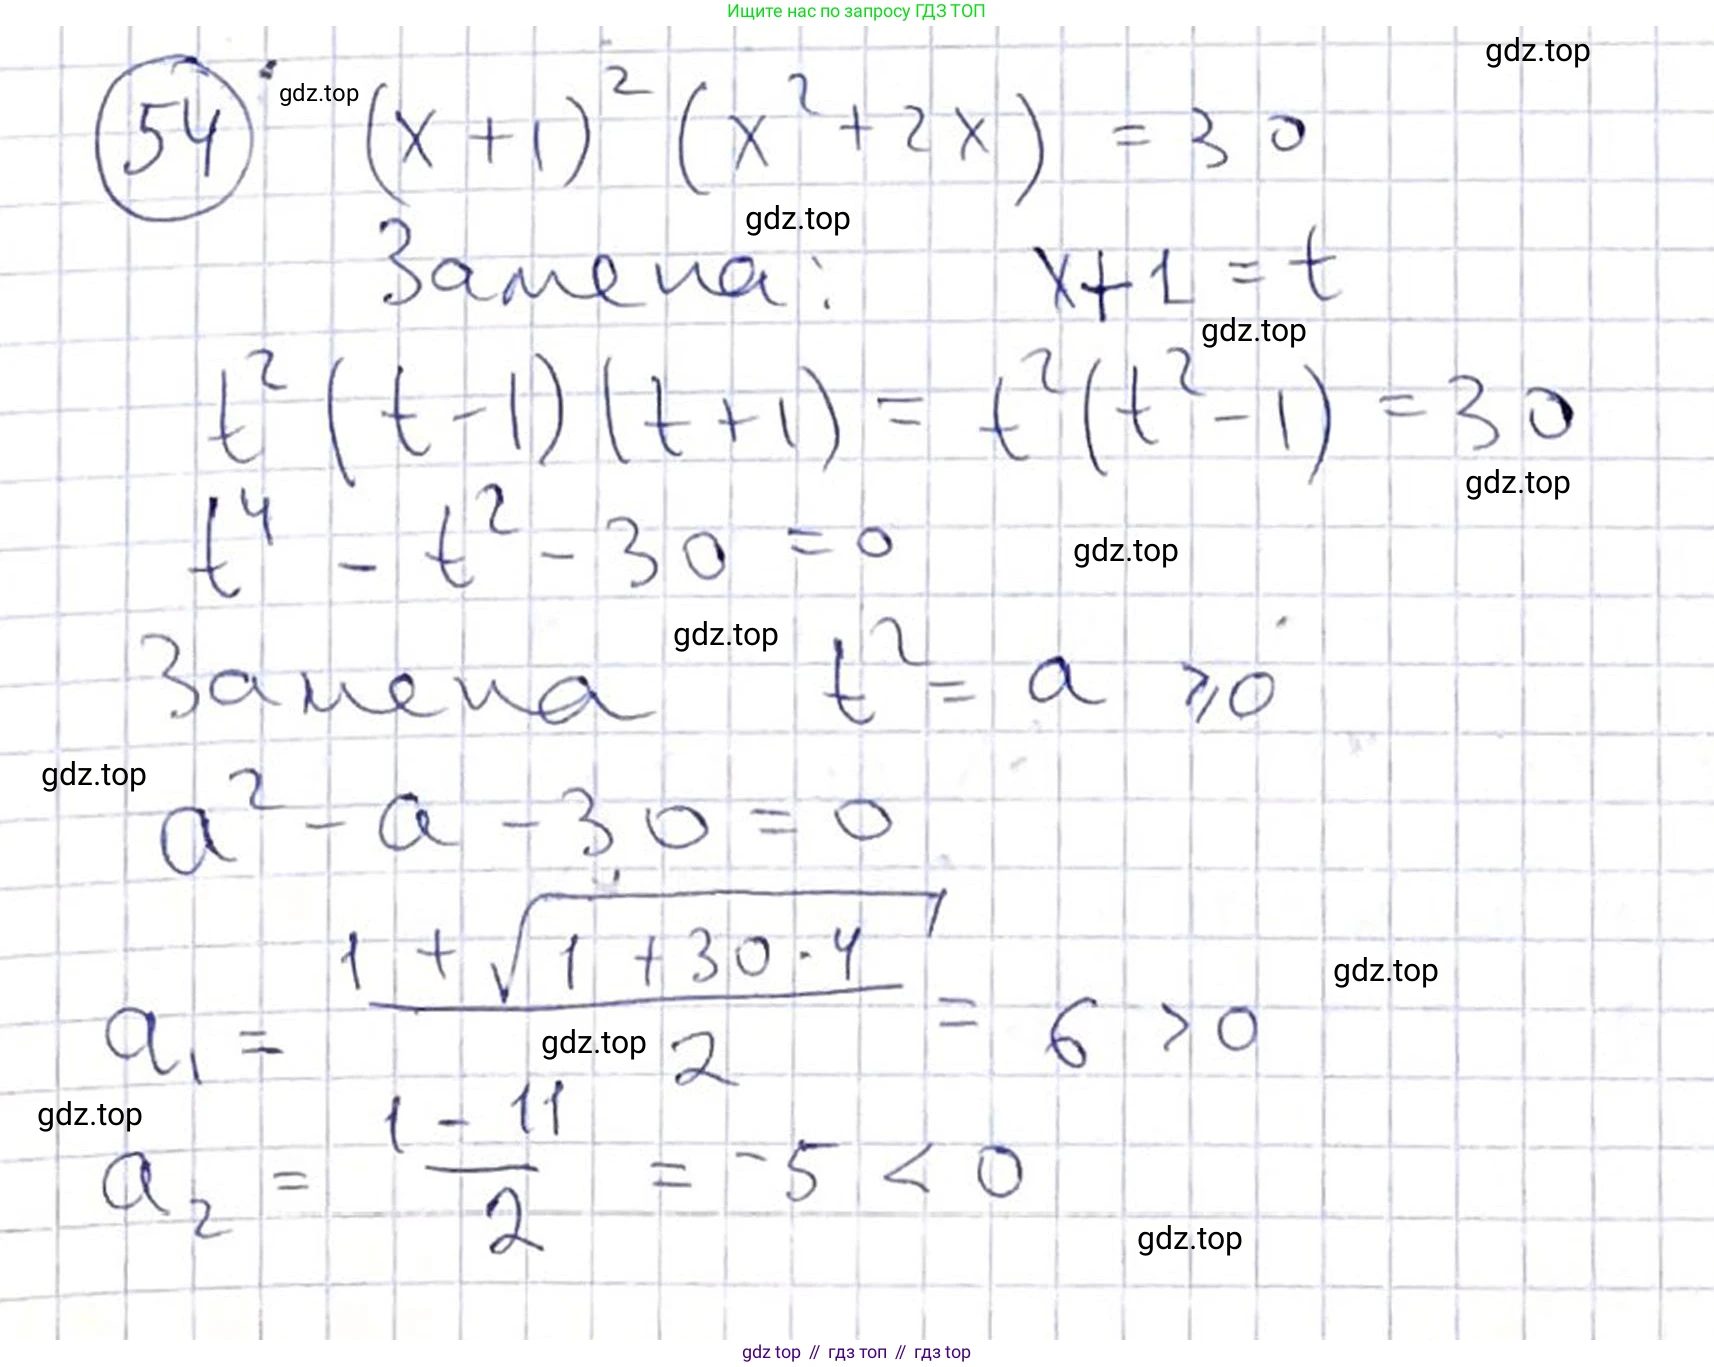 Ищите нас по запросу ГДЗ ТОП
gdz.top
54 gdz.top (x + 1)² (x² + 2x) = 30
gdz.top
Замена: x+1 = t
gdz.top
t² (t - 1) (t + 1) = t² (t² - 1) = 30
gdz.top
t⁴ - t² - 30 = 0
gdz.top
gdz.top
Замена t² = a ⩾0
gdz.top
a² - a - 30 = 0
a₁ = (1 + √(1 + 30 · 4)) / 2 = 6 > 0
gdz.top
gdz.top
gdz.top
a₂ = (1 - 11) / 2 = -5 < 0
gdz.top
gdz top // гдз топ // гдз top